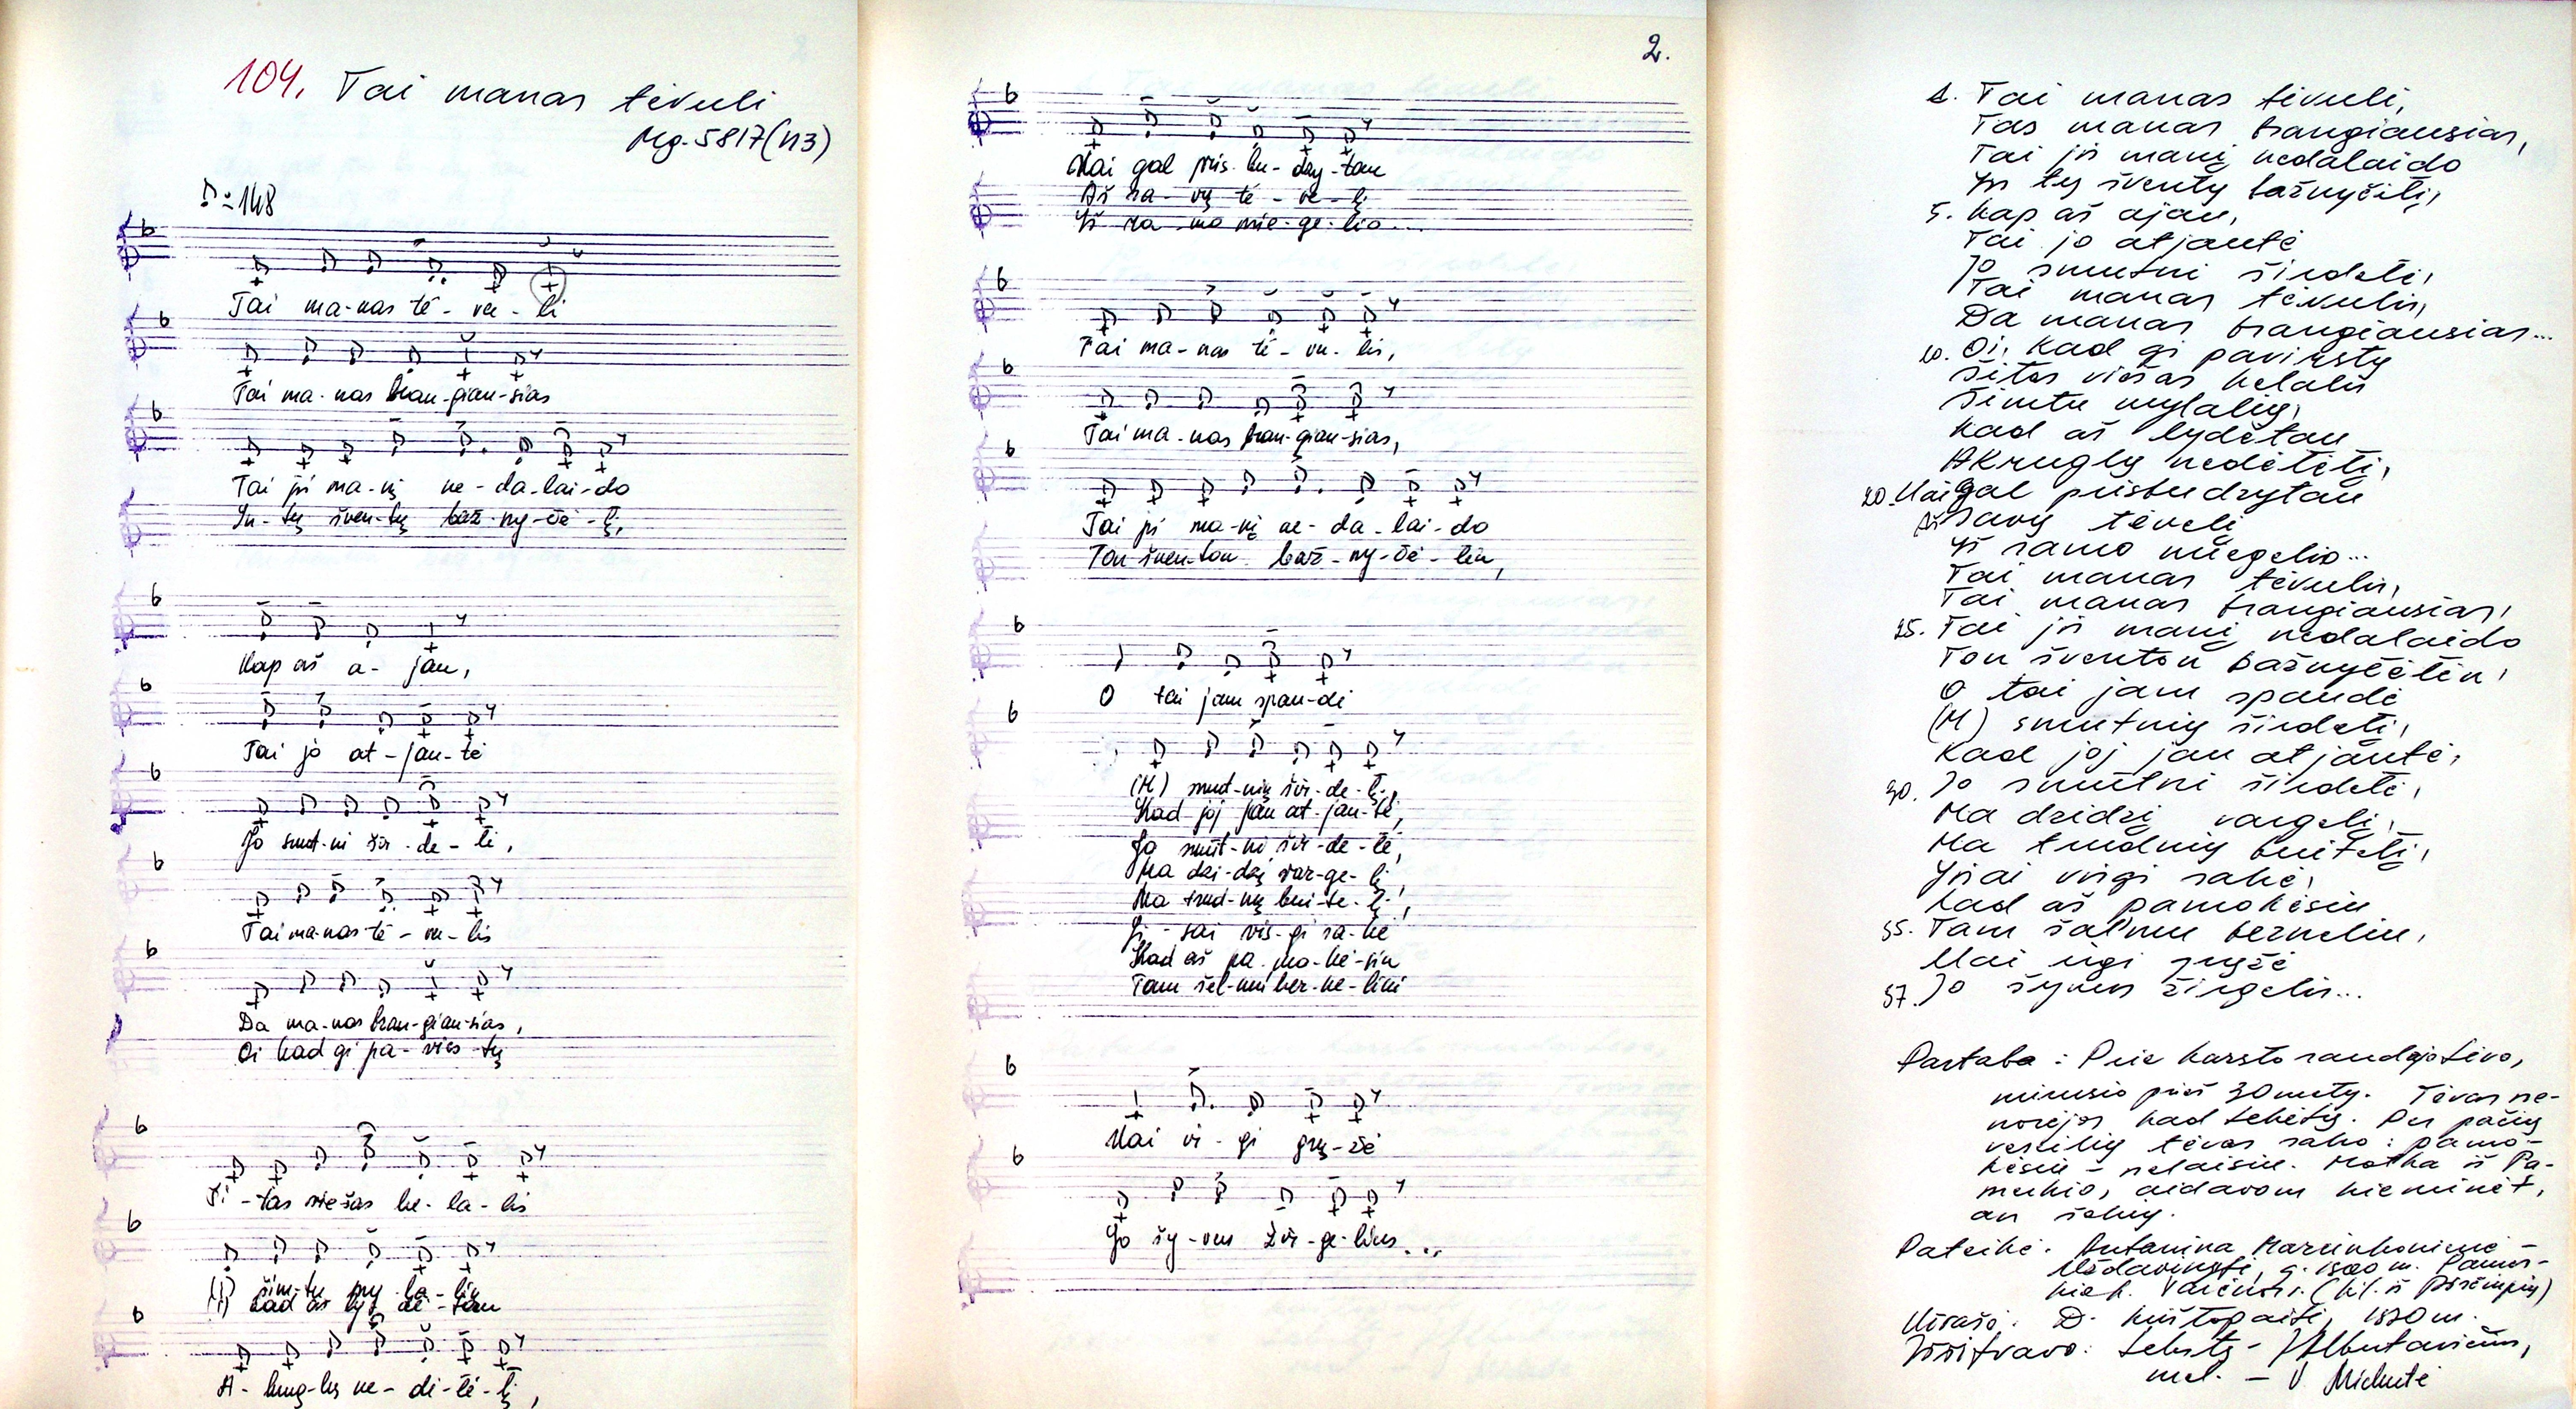 104. Tai manas tėvuli
Mg. 5817(113)
♪=148
Tai ma-nas tė-vu-li
Tai ma-nas bran-giau-sias
Tai ji ma-nį ne-da-lai-do
In-tų šven-tų baž-ny-čė-lį,
Kap aš a-jau,
Tai jo at-jau-tė
Jo smut-ni šir-de-lė,
Tai ma-nas tė-vu-lis
Da ma-nas bran-giau-sias,
Oi kad gi pa-virs-tų
Ši-tas vie-šas ke-la-lis
(I) šim-tu my-la-lių
(I) kad aš lyd-dė-tau
A-krug-lų ne-dė-lė-lį,
2.
Mai gal pris-bu-dzy-tau
Aš sa-vų tė-ve-lį
Iš sa-mo mie-ge-lio...
Tai ma-nas tė-vu-lis,
Tai ma-nas bran-giau-sias,
Tai ji ma-nį ne-da-lai-do
Ton šven-ton baž-ny-čė-lėn,
O tai jam spau-dė
(M) smut-nių šir-de-lę,
Kad joj jau at-jau-tė,
Jo smut-ni šir-de-lė,
Ma dzi-dzį var-ge-lį,
Ma trud-nų bui-te-lį,
Ji-sai vis-gi sa-kė
Kad aš pa-mo-kė-siu
Tam šel-mui ber-ne-liui
Mai vi-gi grų-žė
Jo šy-vus žir-ge-lius...
1. Tai manas tėvuli,
Tas manas brangiausias,
Tai jis manį nedalaido
Yn tų šventų bažnyčėlį,
5. Kap aš ajau,
Tai jo atjautė
Jo smutni širdelė,
Tai manas tėvulis,
Da manas brangiausias...
10. Oi, kad gi pavirstų
Šitas viešas kelalis
Šimtu mylalių,
Kad aš lydėtau
Akruglų nedėlėlį,
20. Mai gal prisbudzytau
Aš savų tėvelį
Iš samo miegelio...
Tai manas tėvulis,
Tai manas brangiausias,
25. Tai jis manį nedalaido
Ton šventon bažnyčėlėn,
O tai jam spaudė
(M) smutnių širdelę,
Kad joj jau atjautė,
30. Jo smutni širdelė,
Ma dzidzį vargelį,
Ma trudnių buitelį,
Jisai visgi sakė,
Kad aš pamokėsiu
35. Tam šalmui berneliui,
Mai vigi
37. Jo šyvus žirgelis...
Pastaba: Prie karsto raudojo tėvo,
mirusio prieš 30 metų. Tėvas ne-
norėjo, kad tekėtų. Per pačių
vestuvių tėvas sako: pamo-
kėsiu – nelaisiu. Motka iš Pa-
merkio, aidavom
an šakių.
Pateikė: Antanina Marcinkonienė –
g. 1920 m. Pamer-
kio k. Varėnos r. (kil. iš
Užrašė: D. 1990 m.
Iššifravo: tekstą – J. Albutavičius,
mel. – V. Mickutė